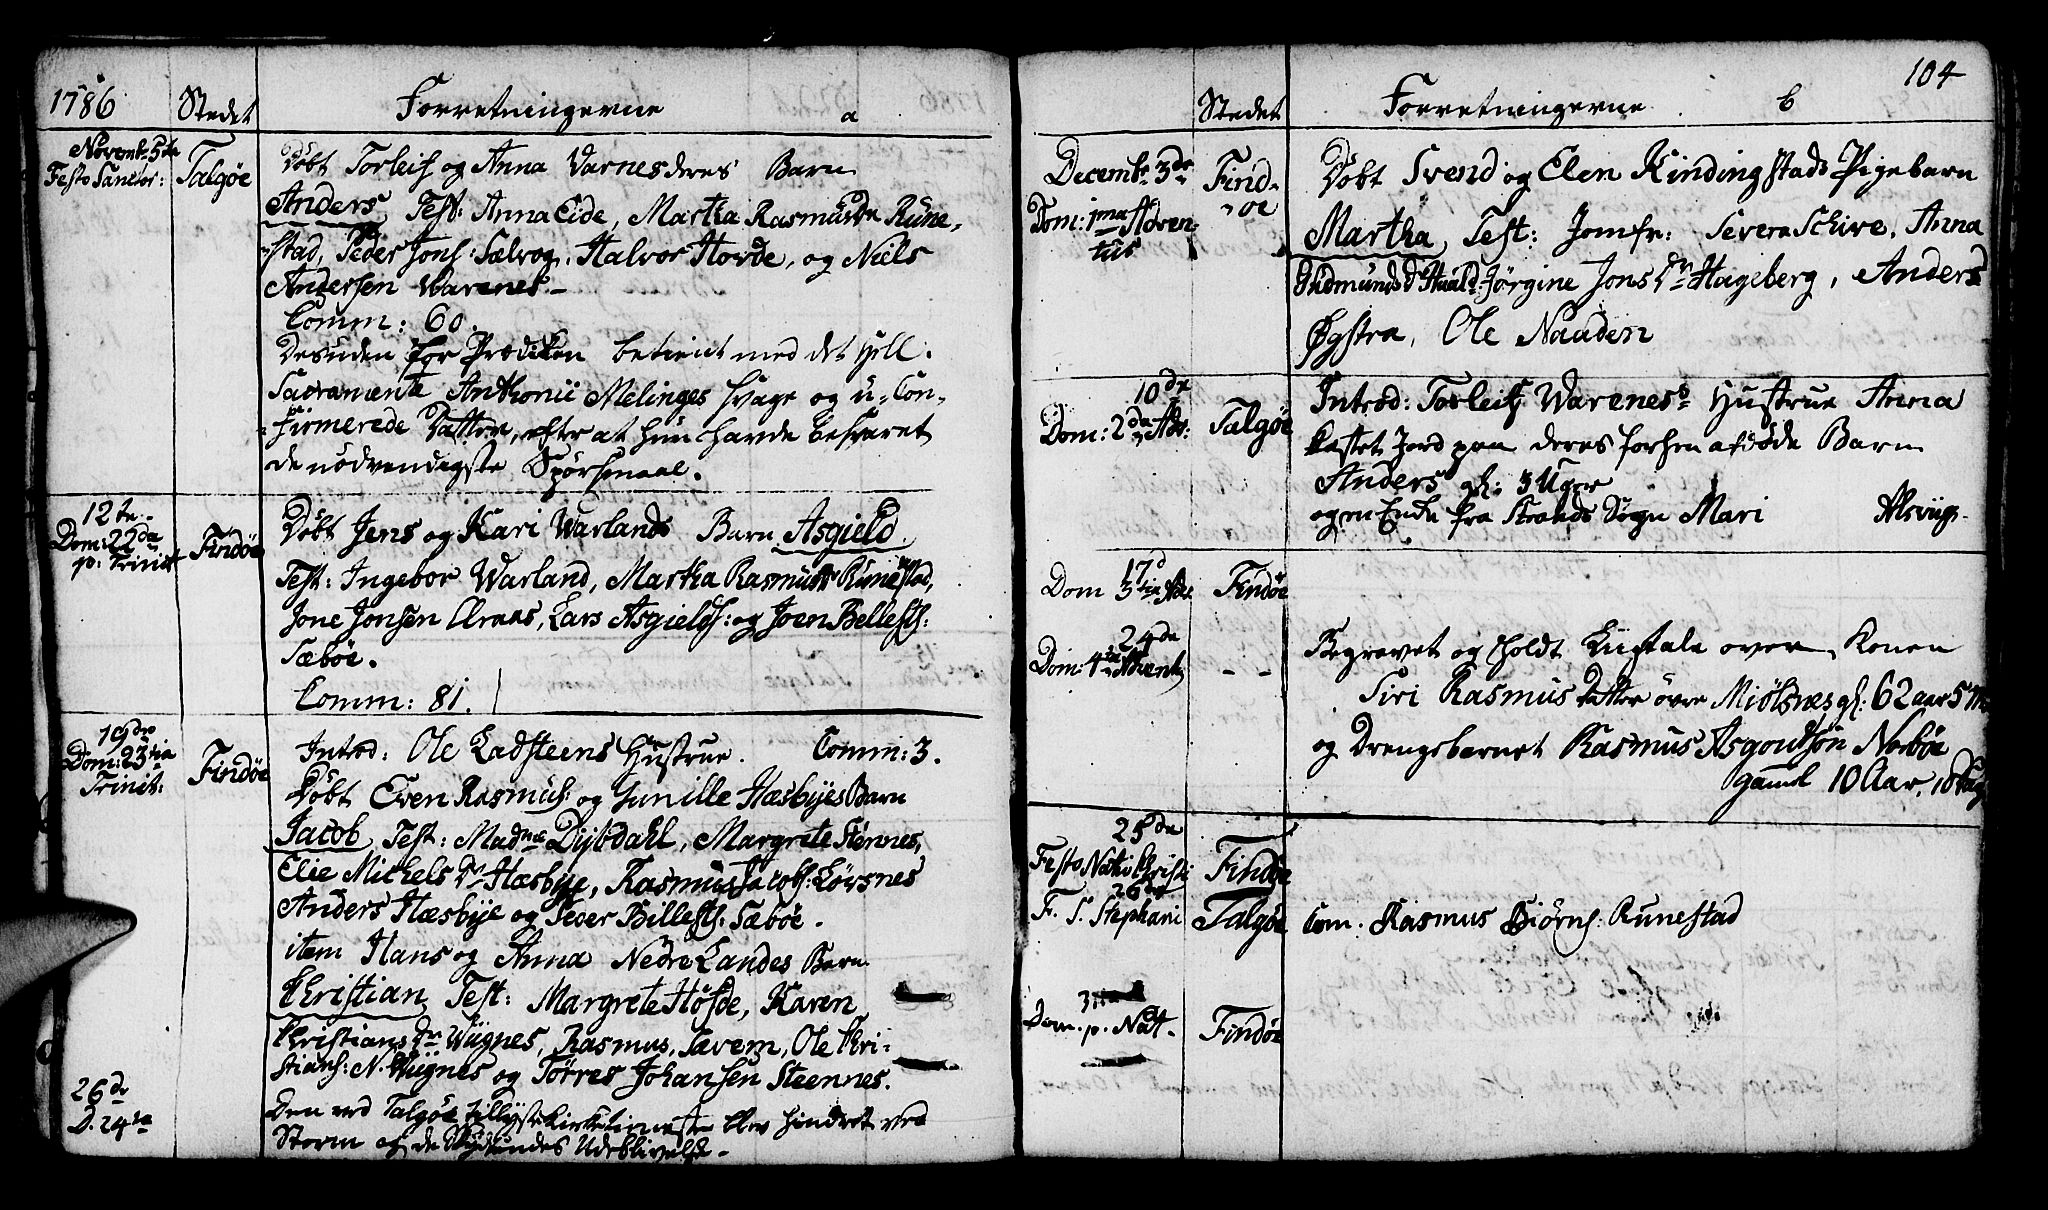 1786 Stedet Forretningerne a
Novemb: 5te
Festo Sanctor: Talgöe
Döbt Torleif og Anna Varnes deres Barn
Anders Test: Anna Eide, Martha Rasmusdr Rune-
stad, Peder Jons: Sælvog, Halvor Hovde, og Niels
Andersen Warenes.
Comm: 60.
Desuden for Prædiken betient med det Hell.
Sacramente Anthonii Melinges svage og u-Con-
firmerede Datter, efter at hun havde besvaret
de nödvendigste Spörsmaal.
12te
Dom: 22da
p: Trinit Findöe
Döbt Jens og Kari Warlands Barn Asgield.
Test: Ingebor Warland, Martha Rasmusdr Runestad,
Jone Jonsen Araas, Lars Asgields: og Joen Bellests:
Sæböe.
Comm: 81.
19de
Dom: 23tia
Trinit: Findöe
Introd: Ole Ladsteens Hustrue. Comm: 3.
Döbt Even Rasmus: og Gunille Hæsbyes Barn
Jacob Test: Madme Dybdahl, Margrete Stennes,
Elie Michels Dr Hæsbye, Rasmus Jacobs: Lörsnes
Anders Hæsbye og Peder Billests: Sæböe.
item Hans og Anna Nedre Landes Barn
Christian Test: Margrete Höfde, Karen
Christians Dr Wignes, Rasmus Sævem, Ole Chri-
stians: N. Wignes og Törres Johansen Steennes.
26de
D. 24de
Den ved Talgöe tillyste Kirketieneste blev hindret ved
Storm og de Skydsendes Udeblivelse.
104
Stedet Forretningerne b
Decemb: 3de
Dom: 1ma Adven
tus
Find-
öe
Döbt Svend og Elen Kindingstads Pigebarn
Martha, Test: Jomfr: Severa Schive, Anna
Gudmunds Dr Jörgine Jons Dr Hageberg, Anders
Ögstra, Ole Naaden
10de
Dom: 2da Adv: Talgöe
Introd: Torleif Warenes's Hustrue Anna
Kastet Jord paa deres forhen afdöde Barn
Anders gl: 3 Uger
og en Enke fra Strands Sogn Mari Alsvigs.
17d
Dom 3tia Adv Findöe
24de
Dom: 4ta Advent - -
Begravet og holdt Liigtale over Konen
Siri Rasmus Datter övre Miölsnes gl: 62 aar 5 M
og Drengebarnet Rasmus Asgoutsön Nesböe
gaml 10 Aar. 10 Dag
25de
Festo Nativ Christi Findöe
26de
F. S. Stephani Talgöe
Com. Rasmus Biörns: Runestad
31te
Dom. p. Nat. Findöe